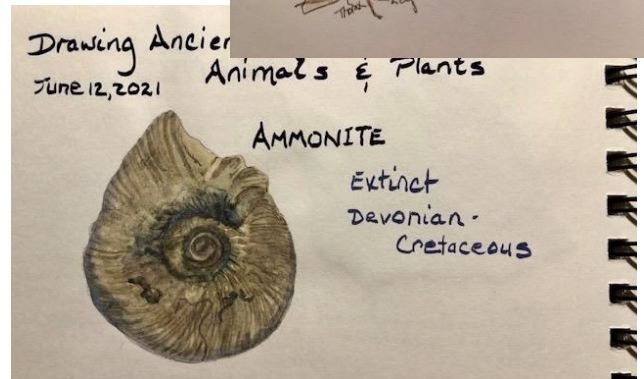 Drawing
Animals & Plants
June 12, 2021
AMMONITE
Extinct
Devonian -
Cretaceous